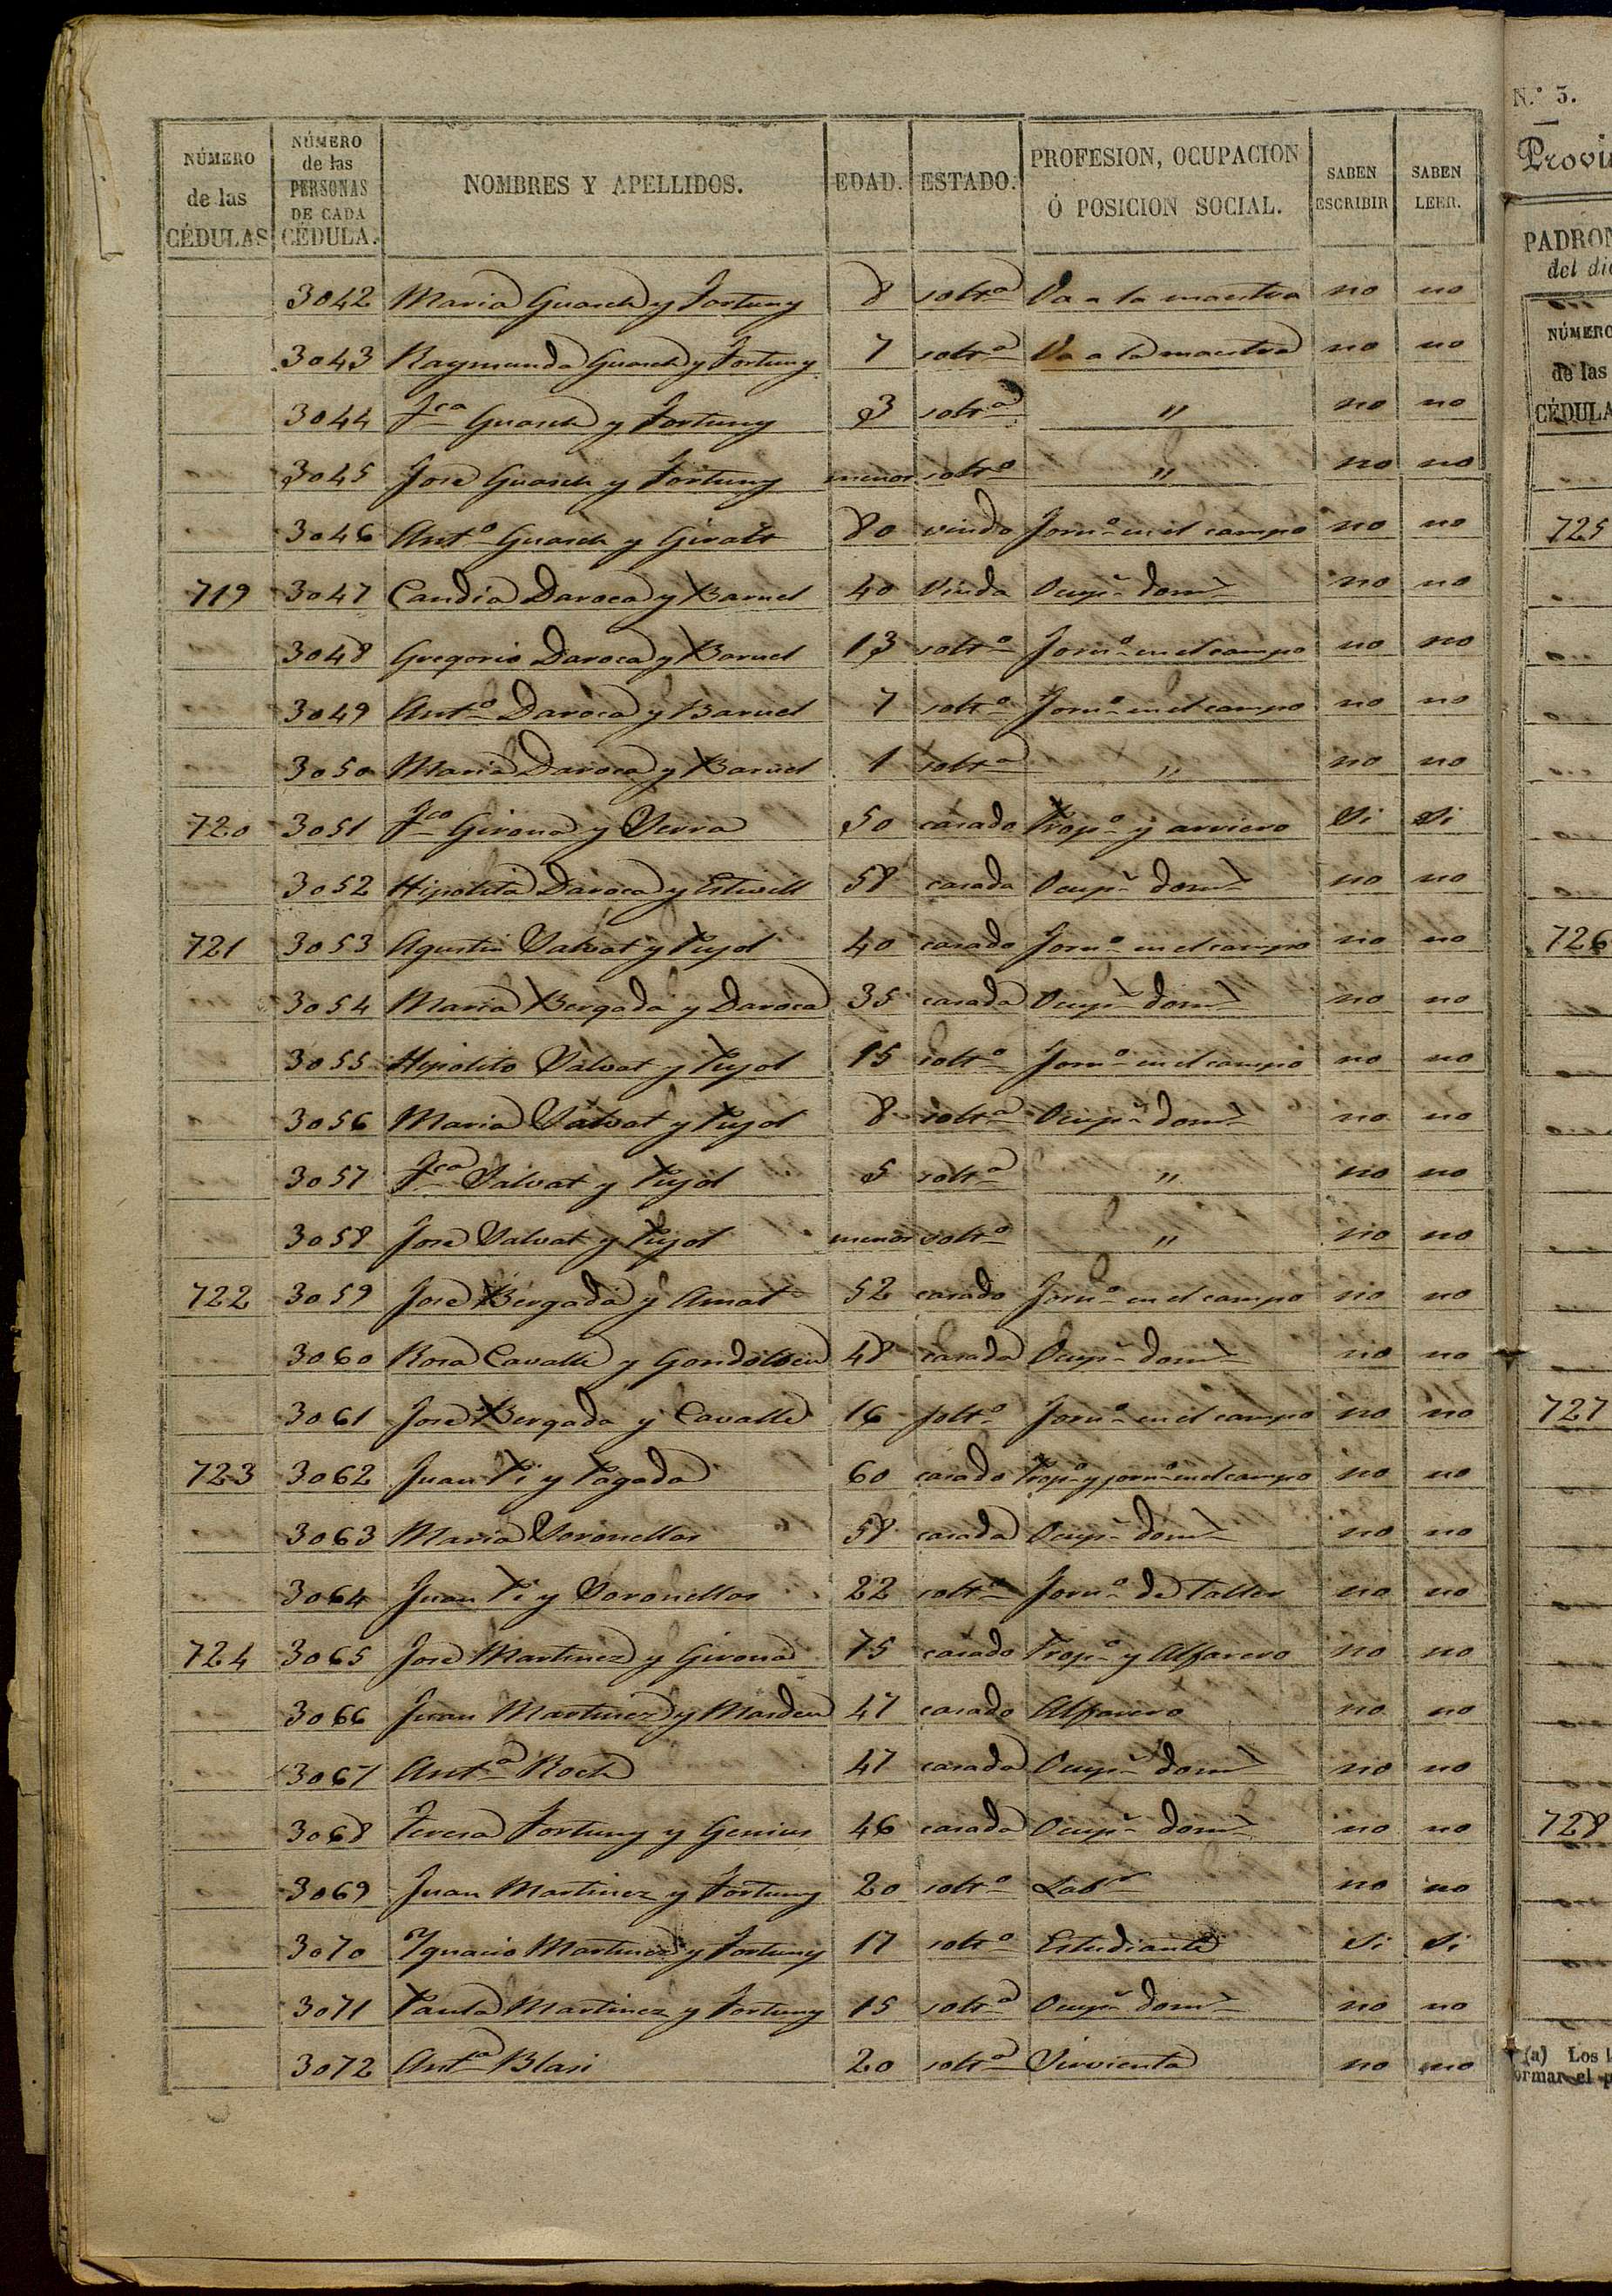 NÚMERO de las CÉDULAS | NÚMERO de las PERSONAS DE CADA CÉDULA. | NOMBRES Y APELLIDOS. | EDAD. | ESTADO. | PROFESION, OCUPACION Ó POSICION SOCIAL. | SABEN ESCRIBIR | SABEN LEER.
3042 Maria Guasch y Fortuny 8 soltª Va a la maestra no no
3043 Raymunda Guasch y Fortuny 7 soltª Va a la maestra no no
3044 Fca Guasch y Fortuny 3 soltª " no no
3045 Jose Guasch y Fortuny menor solto " no no
3046 Anto Guasch y Giralt 80 viudo Jorno en el campo no no
719 3047 Candia Daroca y Baruel 40 Viuda Ocupn domª no no
3048 Gregorio Daroca y Baruel 13 solto Jorno en el campo no no
3049 Anto Daroca y Baruel 7 solto Jorno en el campo no no
3050 Maria Daroca y Baruel 1 soltª " no no
720 3051 Fco Girona y Serra 50 casado Propo y arriero Si Si
3052 Hipolita Daroca y 58 casada Ocupn domª no no
721 3053 Agustin Salvat y Pujol 40 casado Jorno en el campo no no
3054 Maria Bergada y Daroca 35 casada Ocupn domª no no
3055 Hipolito Salvat y Pujol 15 solto Jorno en el campo no no
3056 Maria Salvat y Pujol 8 soltª Ocupn domª no no
3057 Fca Salvat y Pujol 5 soltª " no no
3058 Jose Salvat y Pujol menor solto " no no
722 3059 Jose Bergada y Amat 52 casado Jorno en el campo no no
3060 Rosa Cavallé y 48 casada Ocupn domª no no
3061 Jose Bergada y Cavalle 16 solto Jorno en el campo no no
723 3062 Juan Pi y Pagada 60 casado Propo y jorno en el campo no no
3063 Maria Soronellas 58 casada Ocupn domª no no
3064 Juan Pi y Soronellas 22 solto Jorno de Taller no no
724 3065 Jose Martinez y Girona 75 casado Propo y Alfarero no no
3066 Juan Martinez y 47 casado Alfarero no no
3067 Antª Roch 47 casada Ocupn domª no no
3068 Teresa Fortuny y Genius 46 casada Ocupn domª no no
3069 Juan Martinez y Fortuny 20 solto Labr no no
3070 Ygnacio Martinez y Fortuny 17 solto Estudiante Si Si
3071 Paula Martinez y Fortuny 15 soltª Ocupn domª no no
3072 Antª Blasi 20 soltª Sirvienta no no
N.º 3.
Provi
PADRON
del di
NÚMERO
de las
CÉDULA
725
726
727
728
(a) Los
ormar el p